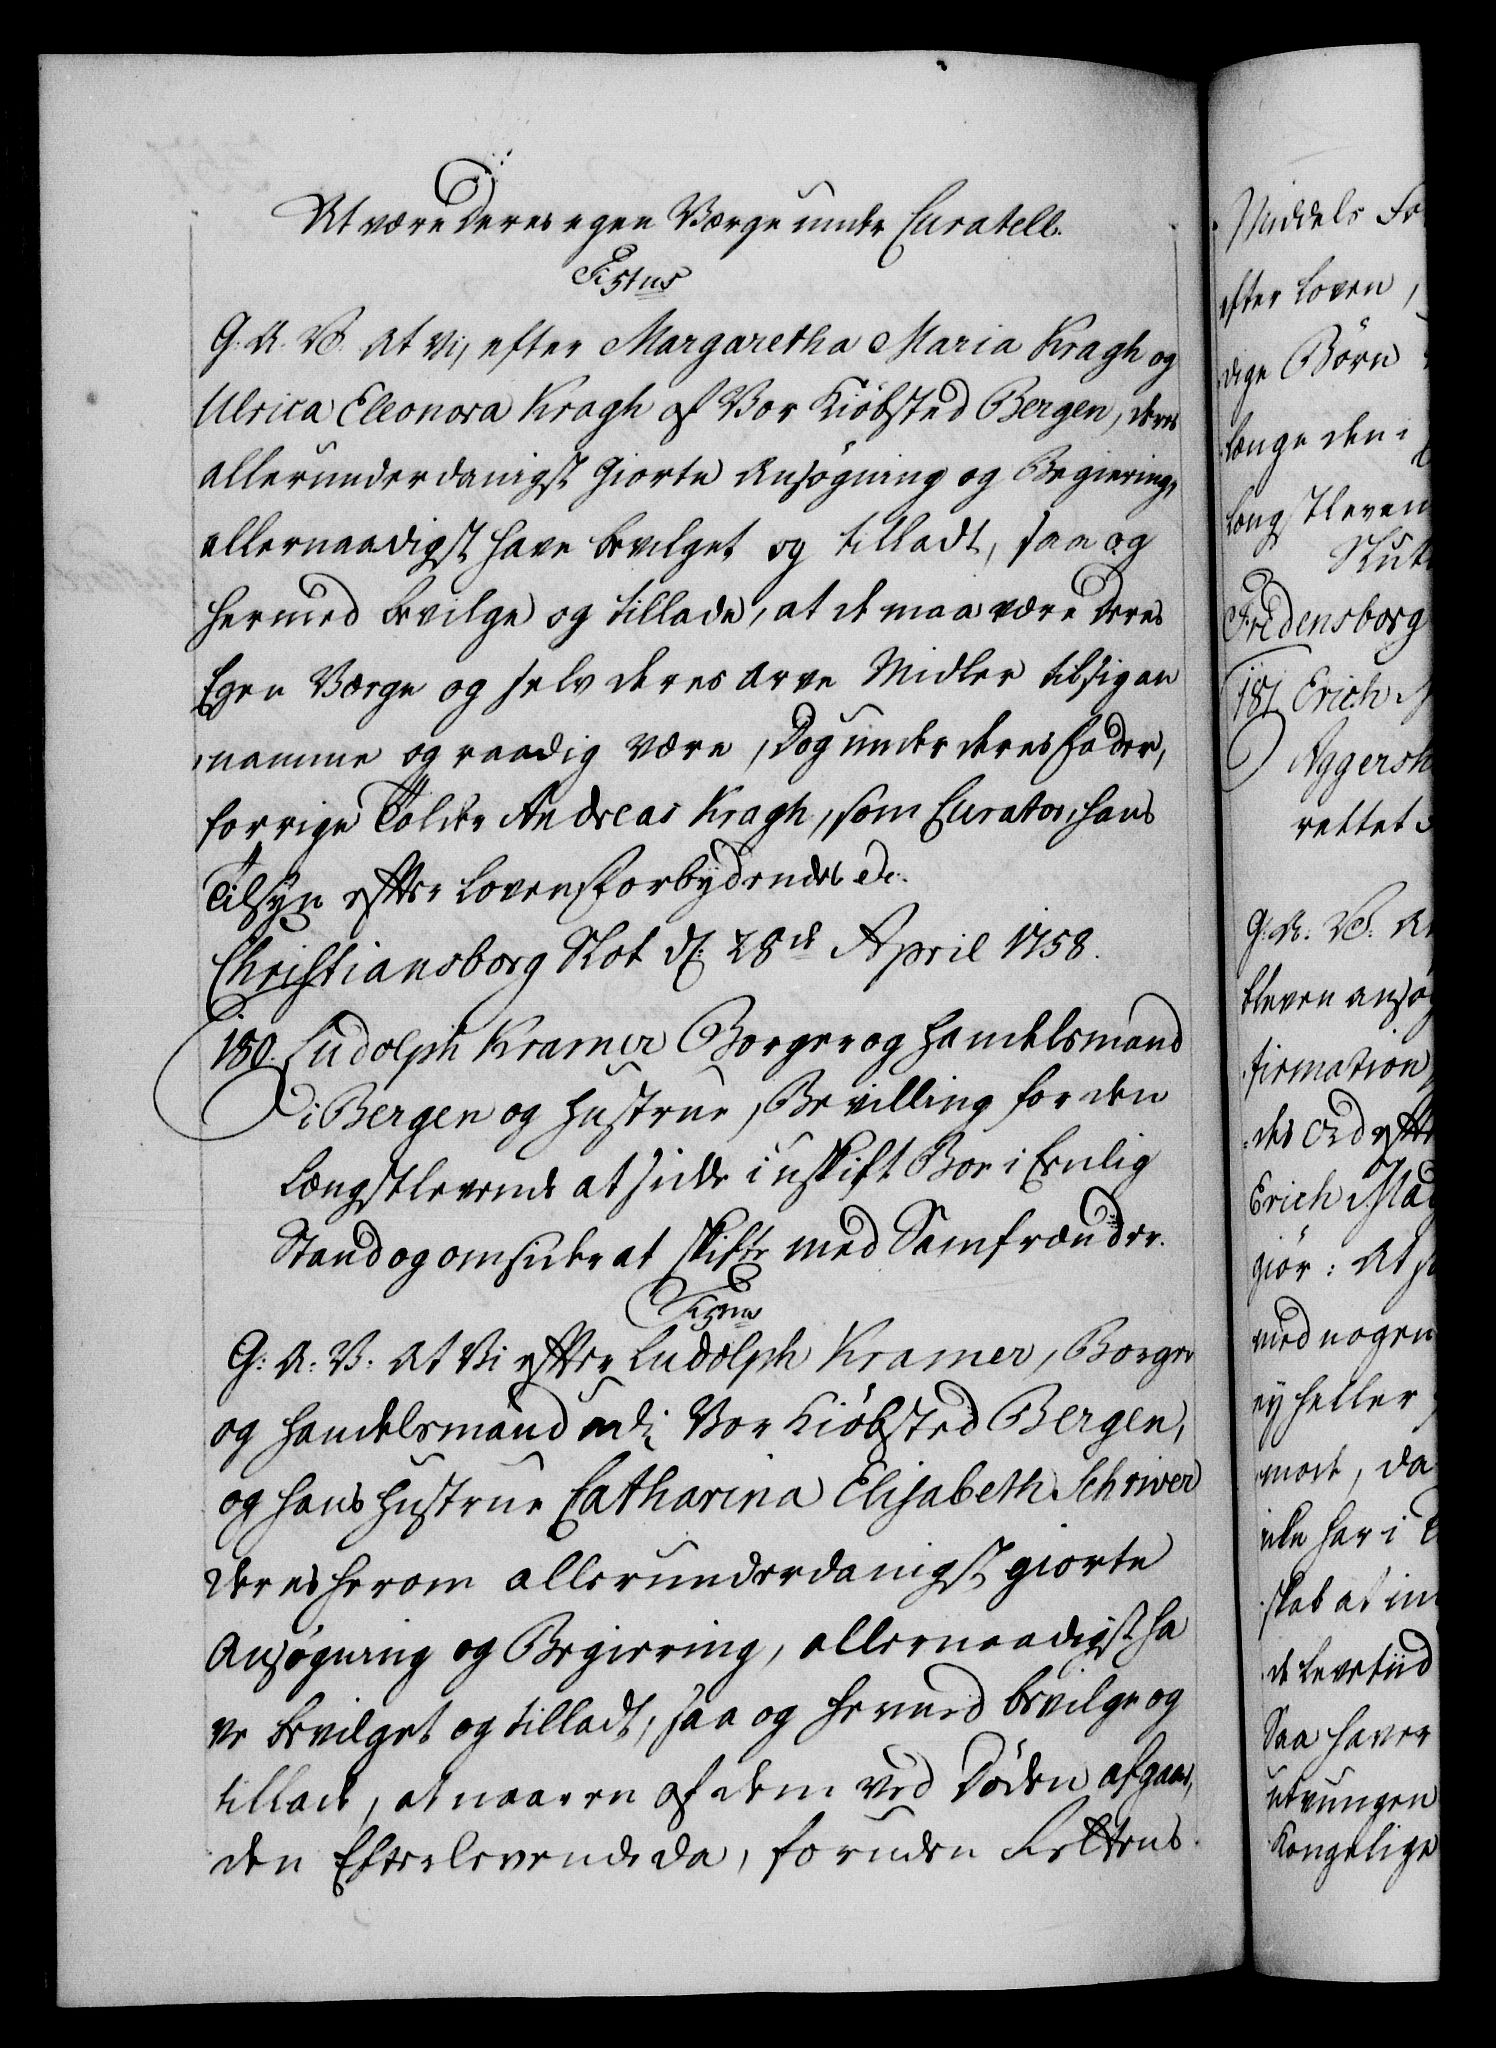 At være deres egen Værge under Curatell.
Fistus
G. A. V. At Vi, efter Margaretha Maria Kragh og
Ulrica Eleonora Kragh af Vor Kiöbsted Bergen, deres
allerunderdanigst giorte Ansögning og Begiering,
allernaadigst have bevilget og tilladt, saa og
hermed bevilge og tillade, at de maa være deres
Egen Værge og selv deres Arve Midler til sig an
namme og raadig være, Dog under deres Fader,
forrige Tolder Andreas Kragh, som Curator, hans
Tilsyn efter Loven Forbydendes &c.
Christiansborg Slot d: 28de April 1758.
180. Ludolph Kramer Borger og Handelsmand
i Bergen og Hustrue, Bevilling for den
Længstlevende at sidde i uskift Boe i Eenlig
Stand og omsider at skifte med Samfrænder.
G: A: V: At Vi efter Ludolph Kramer, Borger
og Handelsmand udi Vor Kiöbsted Bergen,
og hans Hustrue Catharina Elisabeth Schriver
deres herom allerunderdanigst giorte
Ansögning og Begiering, allernaadigst ha
ve bevilget og tilladt, saa og hermed bevilge og
tillade, at naar en af dem ved Döden afgaaer,
den Efterlevende da, foruden Fellteds
Middels
efter Loven,
dige Börn
længe den i
længstleven
Fredensborg
181 Erich
Aggersh
rettet
G: A: V: A
bleven ansög
firmation
des Ord efter
Erich Mad
giör: At
med nogen
ey heller
mod, da
icke har i
skab at in
de Levetiid
Saa haver
utvungen
Kongelige